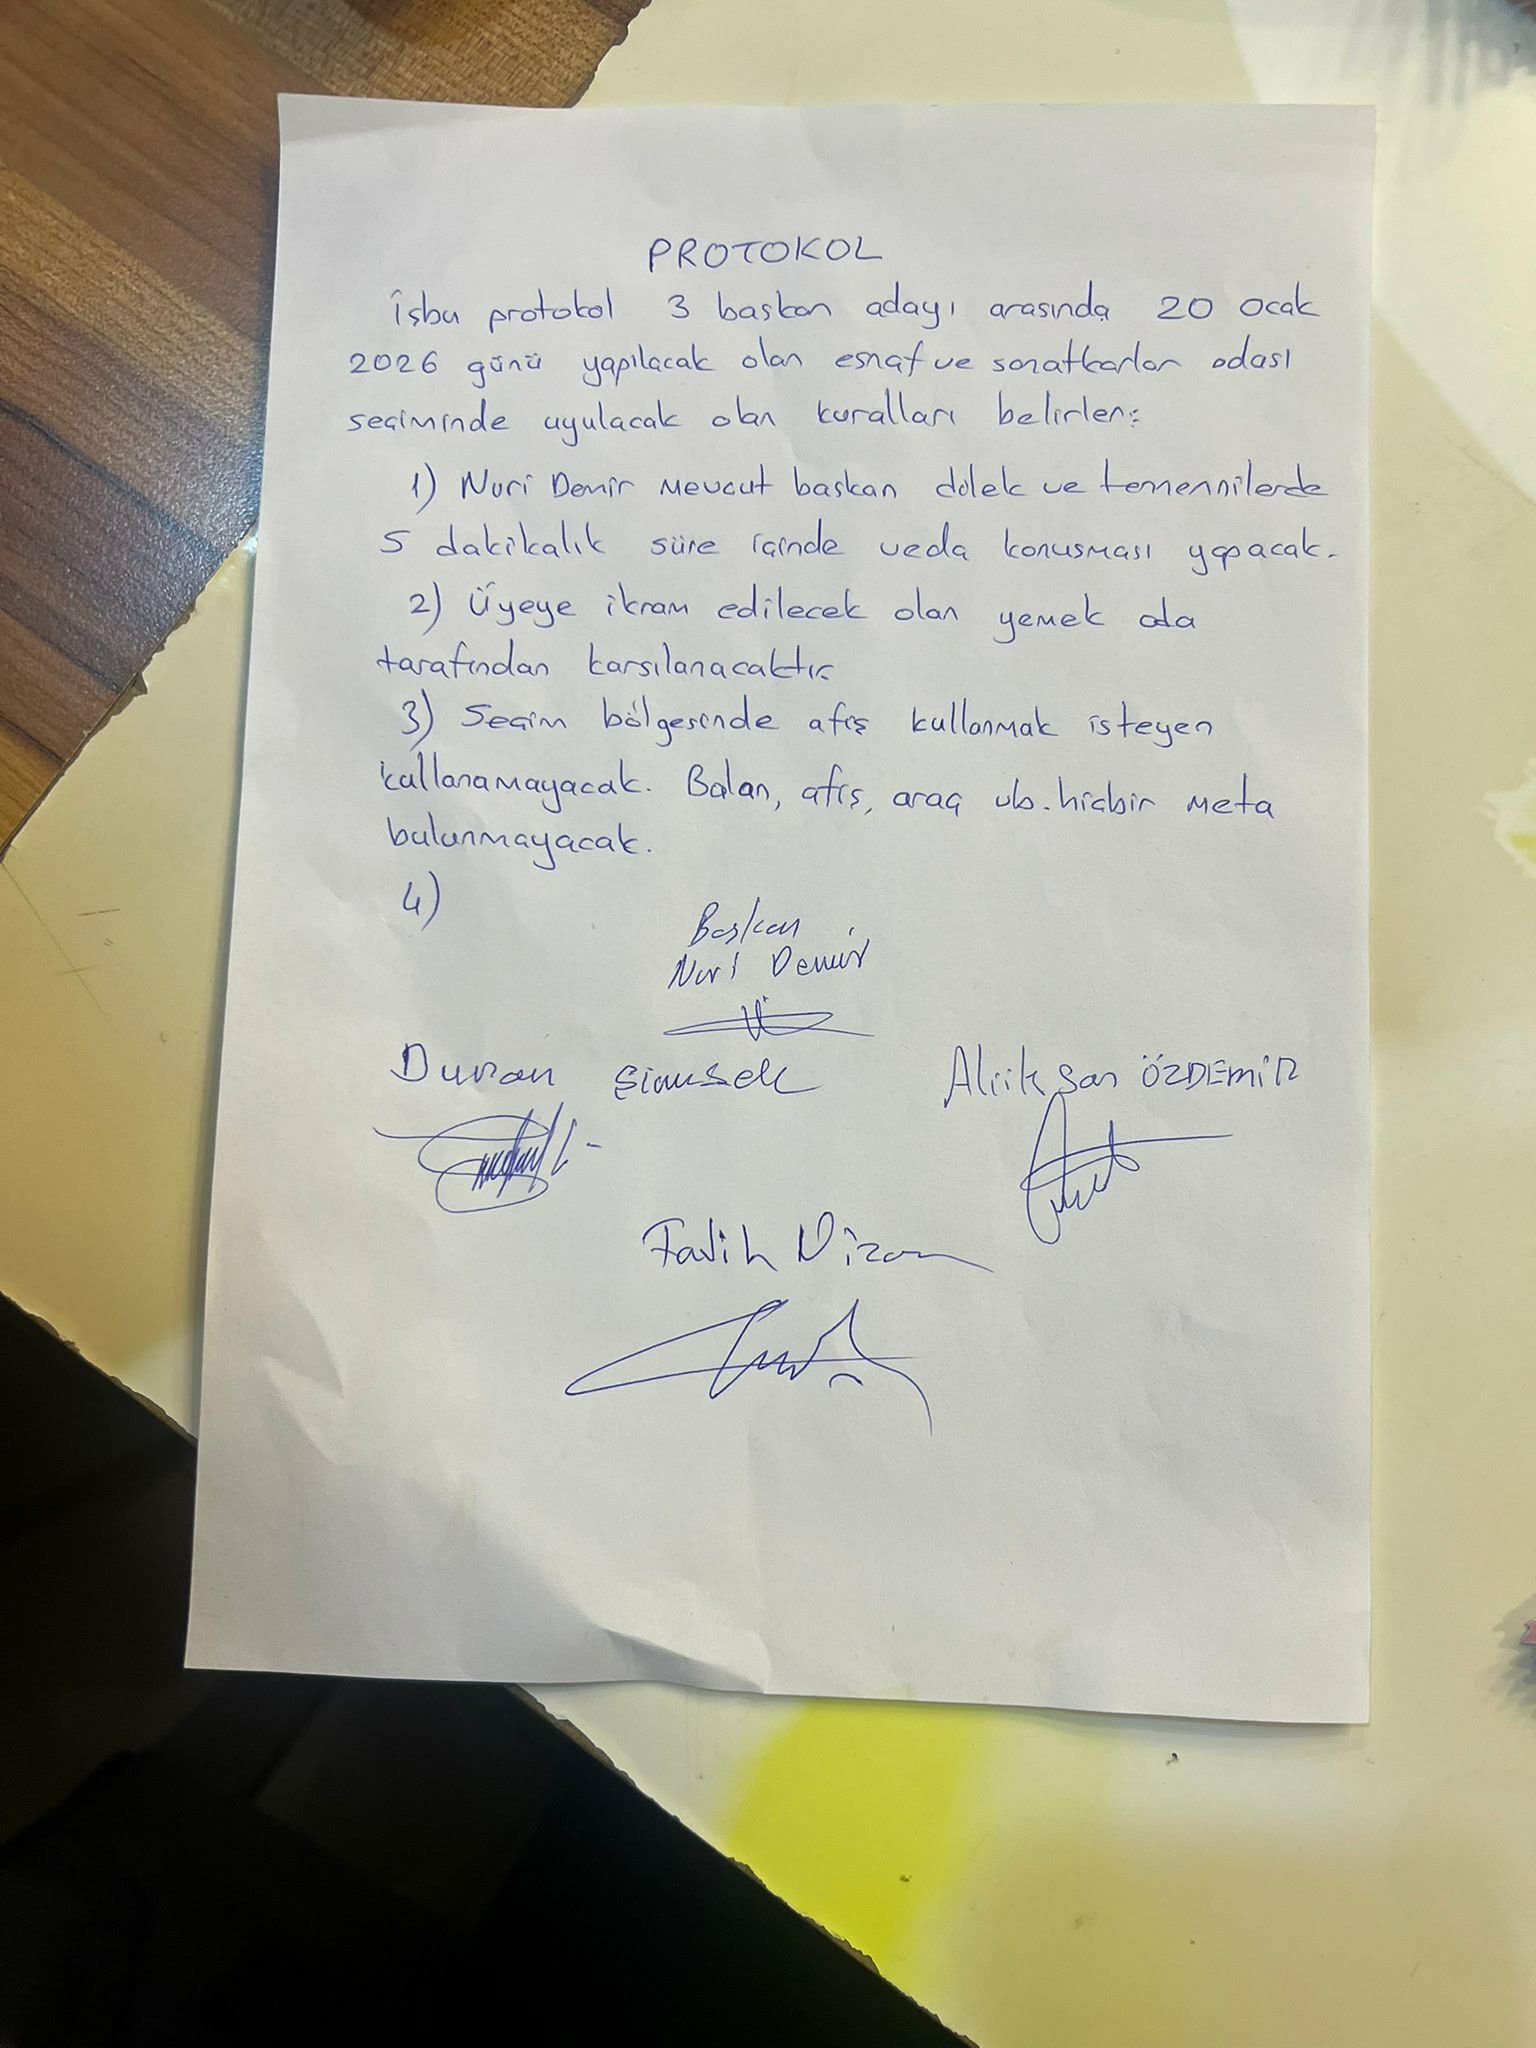 PROTOKOL
İşbu protokol 3 başkan adayı arasında 20 Ocak
2026 günü yapılacak olan esnaf ve sanatkarlar odası
seçiminde uyulacak olan kuralları belirler:
1) Nuri Demir mevcut başkan dilek ve temennilerde
5 dakikalık süre içinde veda konuşması yapacak.
2) Üyeye ikram edilecek olan yemek oda
tarafından karşılanacaktır
3) Seçim bölgesinde afiş kullanmak isteyen
kullanamayacak. Balan, afiş, araç vb. hiçbir meta
bulunmayacak.
4)
Başkan
Nuri Demir
Duran Şimşek Alikşan ÖZDEMİR
Fatih Nizam